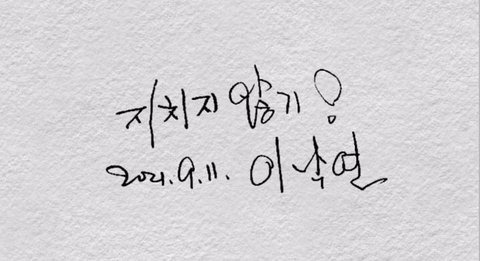 지치지 않기!
2021.9.11. 이낙연